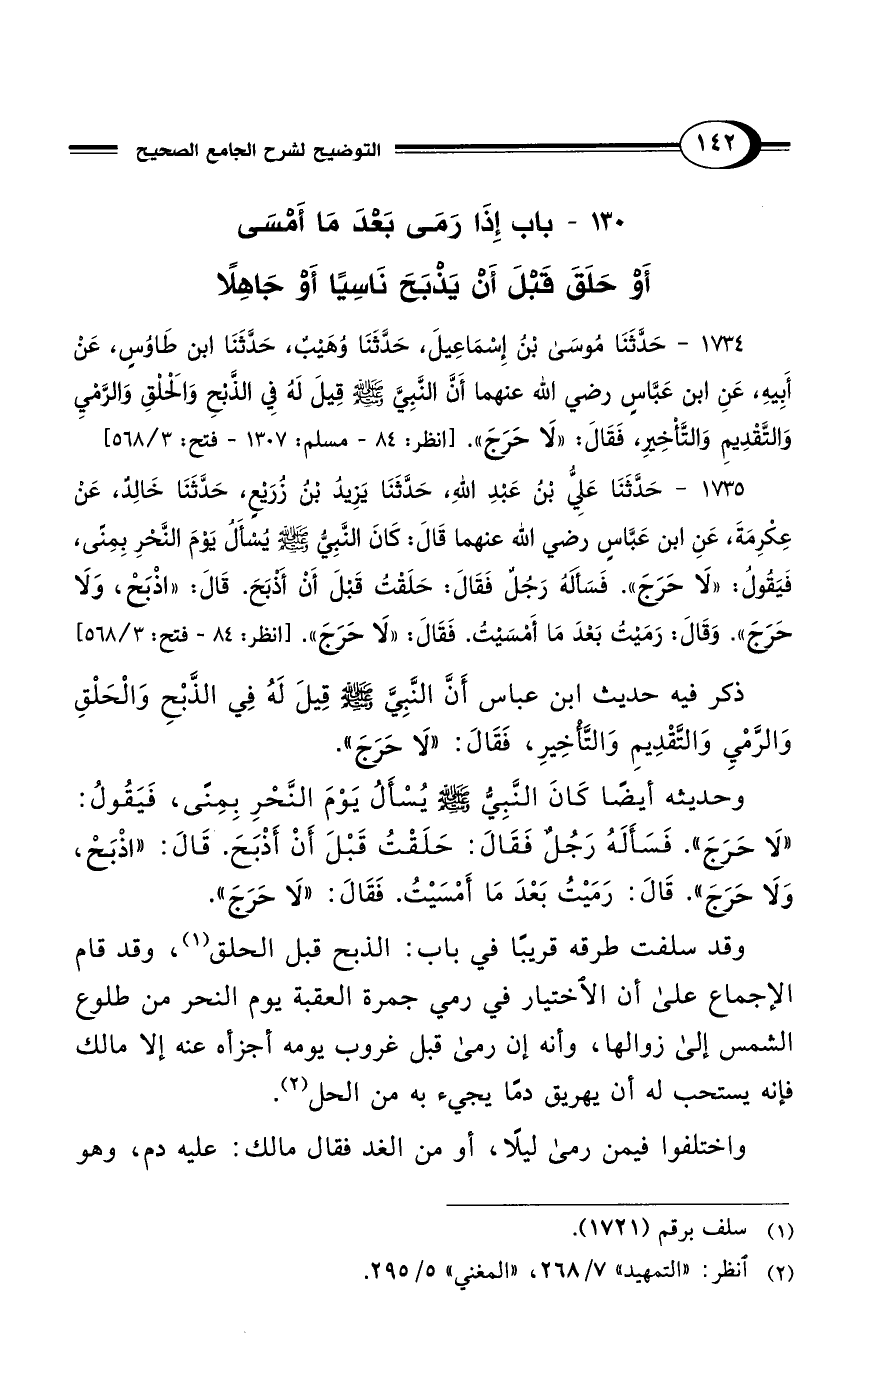 ١٤٢ التوضيح لشرح الجامع الصحيح
١٣٠ - باب إِذَا رَمَى بَعْدَ مَا أَمْسَى
أَوْ حَلَقَ قَبْلَ أَنْ يَذْبَحَ نَاسِيًا أَوْ جَاهِلًا
١٧٣٤ - حَدَّثَنَا مُوسَىٰ بْنُ إِسْمَاعِيلَ، حَدَّثَنَا وُهَيْبٌ، حَدَّثَنَا ابن طَاوُسٍ، عَنْ
أَبِيهِ، عَنِ ابن عَبَّاسٍ رضي الله عنهما أَنَّ النَّبِيَّ ﷺ قِيلَ لَهُ فِي الذَّبْحِ وَالْحَلْقِ وَالرَّمْيِ
وَالتَّقْدِيمِ وَالتَّأْخِيرِ، فَقَالَ: «لَا حَرَجَ». [انظر: ٨٤ - مسلم: ١٣٠٧ - فتح: ٥٦٨/٣]
١٧٣٥ - حَدَّثَنَا عَلِيُّ بْنُ عَبْدِ اللهِ، حَدَّثَنَا يَزِيدُ بْنُ زُرَيْعٍ، حَدَّثَنَا خَالِدٌ، عَنْ
عِكْرِمَةَ، عَنِ ابن عَبَّاسٍ رضي الله عنهما قَالَ: كَانَ النَّبِيُّ ﷺ يُسْأَلُ يَوْمَ النَّحْرِ بِمِنًى،
فَيَقُولُ: «لَا حَرَجَ». فَسَأَلَهُ رَجُلٌ فَقَالَ: حَلَقْتُ قَبْلَ أَنْ أَذْبَحَ. قَالَ: «اذْبَحْ، وَلَا
حَرَجَ». وَقَالَ: رَمَيْتُ بَعْدَ مَا أَمْسَيْتُ. فَقَالَ: «لَا حَرَجَ». [انظر: ٨٤ - فتح: ٥٦٨/٣]
ذكر فيه حديث ابن عباس أَنَّ النَّبِيَّ ﷺ قِيلَ لَهُ فِي الذَّبْحِ وَالْحَلْقِ
وَالرَّمْيِ وَالتَّقْدِيمِ وَالتَّأْخِيرِ، فَقَالَ: «لَا حَرَجَ».
وحديثه أيضًا كَانَ النَّبِيُّ ﷺ يُسْأَلُ يَوْمَ النَّحْرِ بِمِنًى، فَيَقُولُ:
«لَا حَرَجَ». فَسَأَلَهُ رَجُلٌ فَقَالَ: حَلَقْتُ قَبْلَ أَنْ أَذْبَحَ. قَالَ: «اذْبَحْ،
وَلَا حَرَجَ». قَالَ: رَمَيْتُ بَعْدَ مَا أَمْسَيْتُ. فَقَالَ: «لَا حَرَجَ».
وقد سلفت طرقه قريبًا في باب: الذبح قبل الحلق(١)، وقد قام
الإجماع علىٰ أن الاختيار في رمي جمرة العقبة يوم النحر من طلوع
الشمس إلىٰ زوالها، وأنه إن رمىٰ قبل غروب يومه أجزأه عنه إلا مالك
فإنه يستحب له أن يهريق دمًا يجيء به من الحل(٢).
واختلفوا فيمن رمىٰ ليلًا، أو من الغد فقال مالك: عليه دم، وهو
(١) سلف برقم (١٧٢١).
(٢) أنظر: «التمهيد» ٢٦٨/٧، «المغني» ٢٩٥/٥.